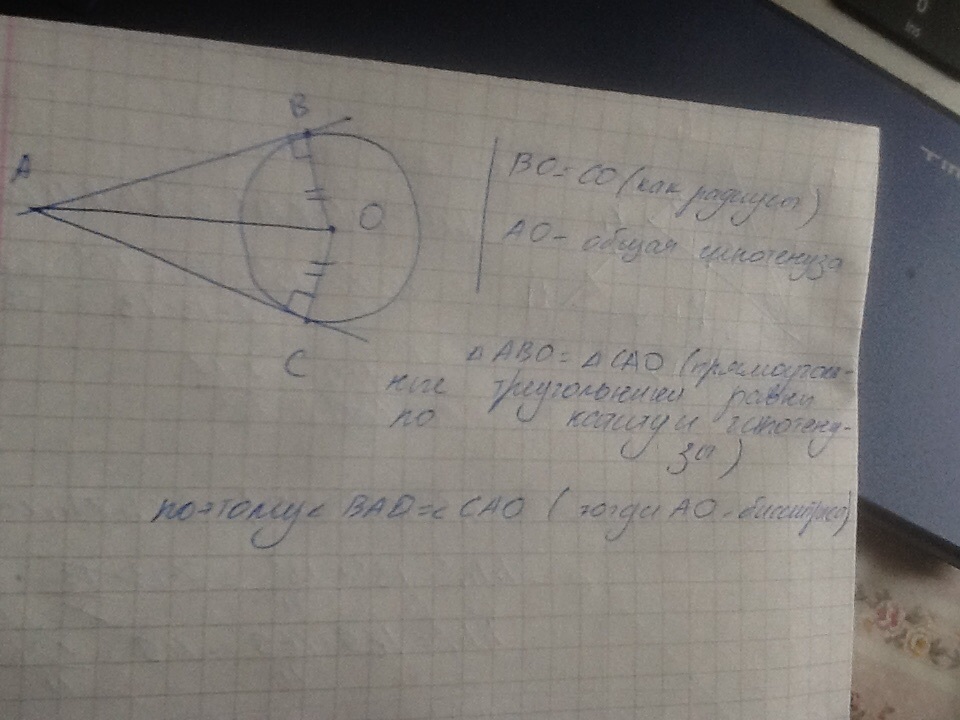 B
A
O
C
BO = CO (как радиусы)
AO - общая гипотенуза
△ ABO = △ CAO (прямоуголь-
ные треугольники равны
по катету и гипотену-
зе)
поэтому < BAO = < CAO ( тогда AO - биссектриса)